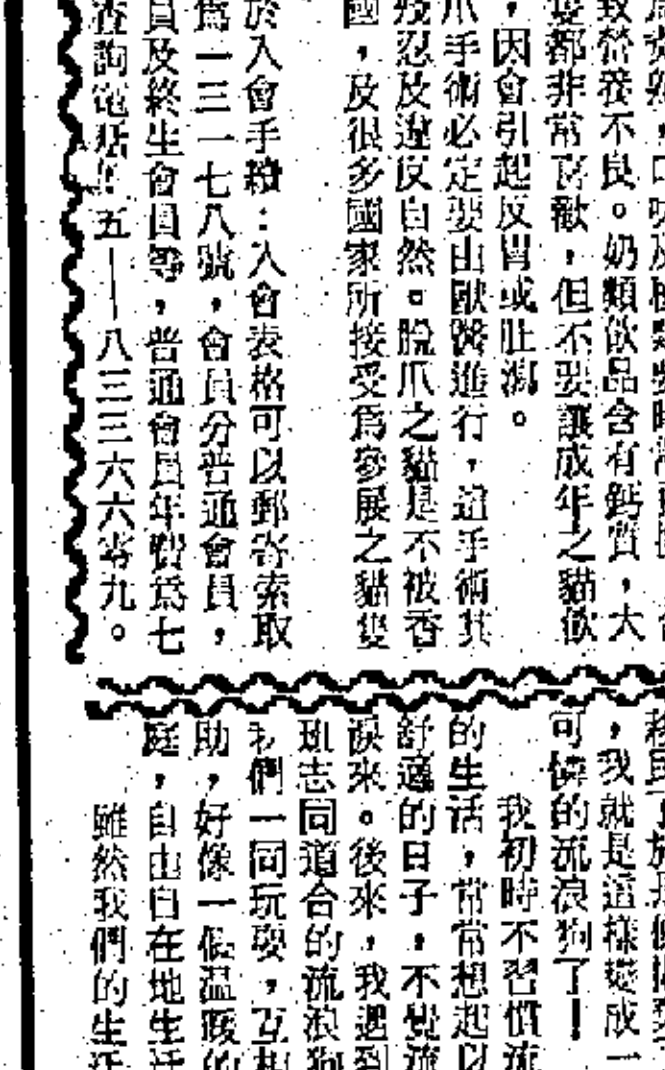 致營養不良。奶類飲品含有鈣質,大
都非常喜歡,但不要讓成年之貓飲
,因會引起反胃或肚瀉。
爪手術必定要由獸醫進行,這手術其
殘忍及違反自然。脫爪之貓是不被香
國,及很多國家所接受爲參展之貓隻
於入會手續:入會表格可以郵寄索取
爲一三一七八號,會員分普通會員,
員及終生會員等,普通會員年費爲七
查詢電話 五—八三三六六零九。
,我就是這樣變成一
可憐的流浪狗了!
我初時不習慣流
的生活,常常想起以
舒適的日子,不覺流
淚來。後來,我遇到
班志同道合的流浪狗
我們一同玩耍,互相
助,好像一個溫暖的
庭,自由自在地生活
雖然我們的生活